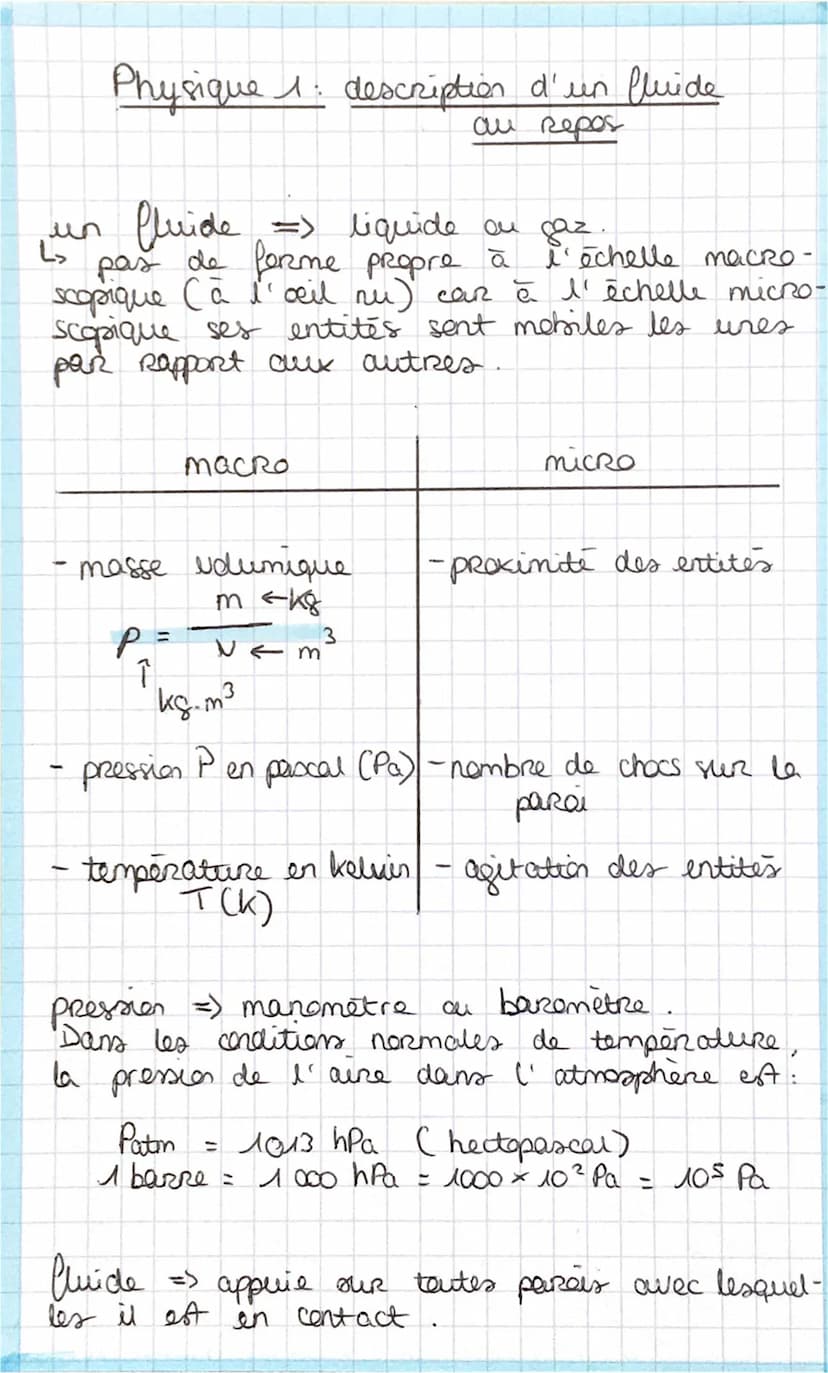 Physique 1 : description d'un fluide
au repos
un fluide => liquide ou gaz.
↳ pas de forme propre à l'échelle macro-
scopique (à l'œil nu) car à l'échelle micro-
scopique ses entités sont mobiles les unes
par rapport aux autres.
macro
micro
- masse volumique
- proximité des entités
m ← kg
ρ =
V ← m³
↑
kg.m³
- pression P en pascal (Pa)
- nombre de chocs sur la
paroi
- température en kelvin
- agitation des entités
T (K)
pression => manomètre ou baromètre.
Dans les conditions normales de température,
la pression de l'aire dans l'atmosphère est :
Patm = 1013 hPa (hectopascal)
1 barre = 1 000 hPa = 1000 × 10² Pa = 10⁵ Pa
fluide => appuie sur toutes parois avec lesquel-
les il est en contact.